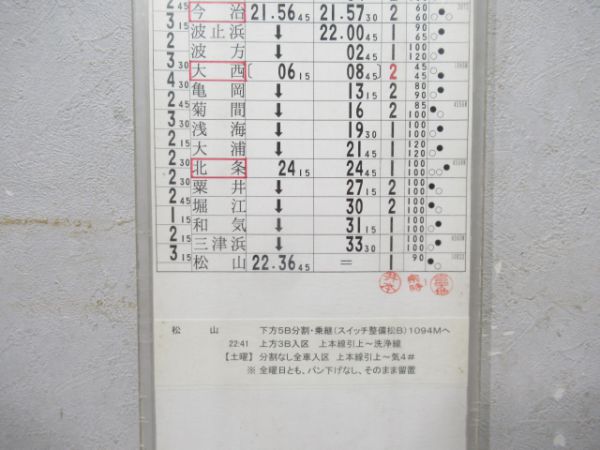 2 45 今治 21.56 45 21.57 30 2 60
3 15 波止浜 ↓ 22.00 45 1 90 65
2 波方 ↓ 02 45 1 100
3 30 大西 〔 06 15 08 45 〕 2 45 45
4 亀岡 ↓ 13 15 2 80 90
2 45 菊間 ↓ 16 2 85 100
3 30 浅海 ↓ 19 30 1 100 100
2 15 大浦 ↓ 21 45 1 120 120
2 30 北条 24 15 24 45 1 100 100
2 30 粟井 ↓ 27 15 2 100 100
2 45 堀江 ↓ 30 2 100 100
1 15 和気 ↓ 31 15 1 100 100
2 15 三津浜 ↓ 33 30 1 100 100
3 15 松山 22.36 45 = 1 90
松山 下方5B分割・乗継(スイッチ整備松B)1094Mへ
22:41 上方3B入区 上本線引上~洗浄線
【土曜】 分割なし全車入区 上本線引上~気4#
※ 全曜日とも、パン下げなし、そのまま留置